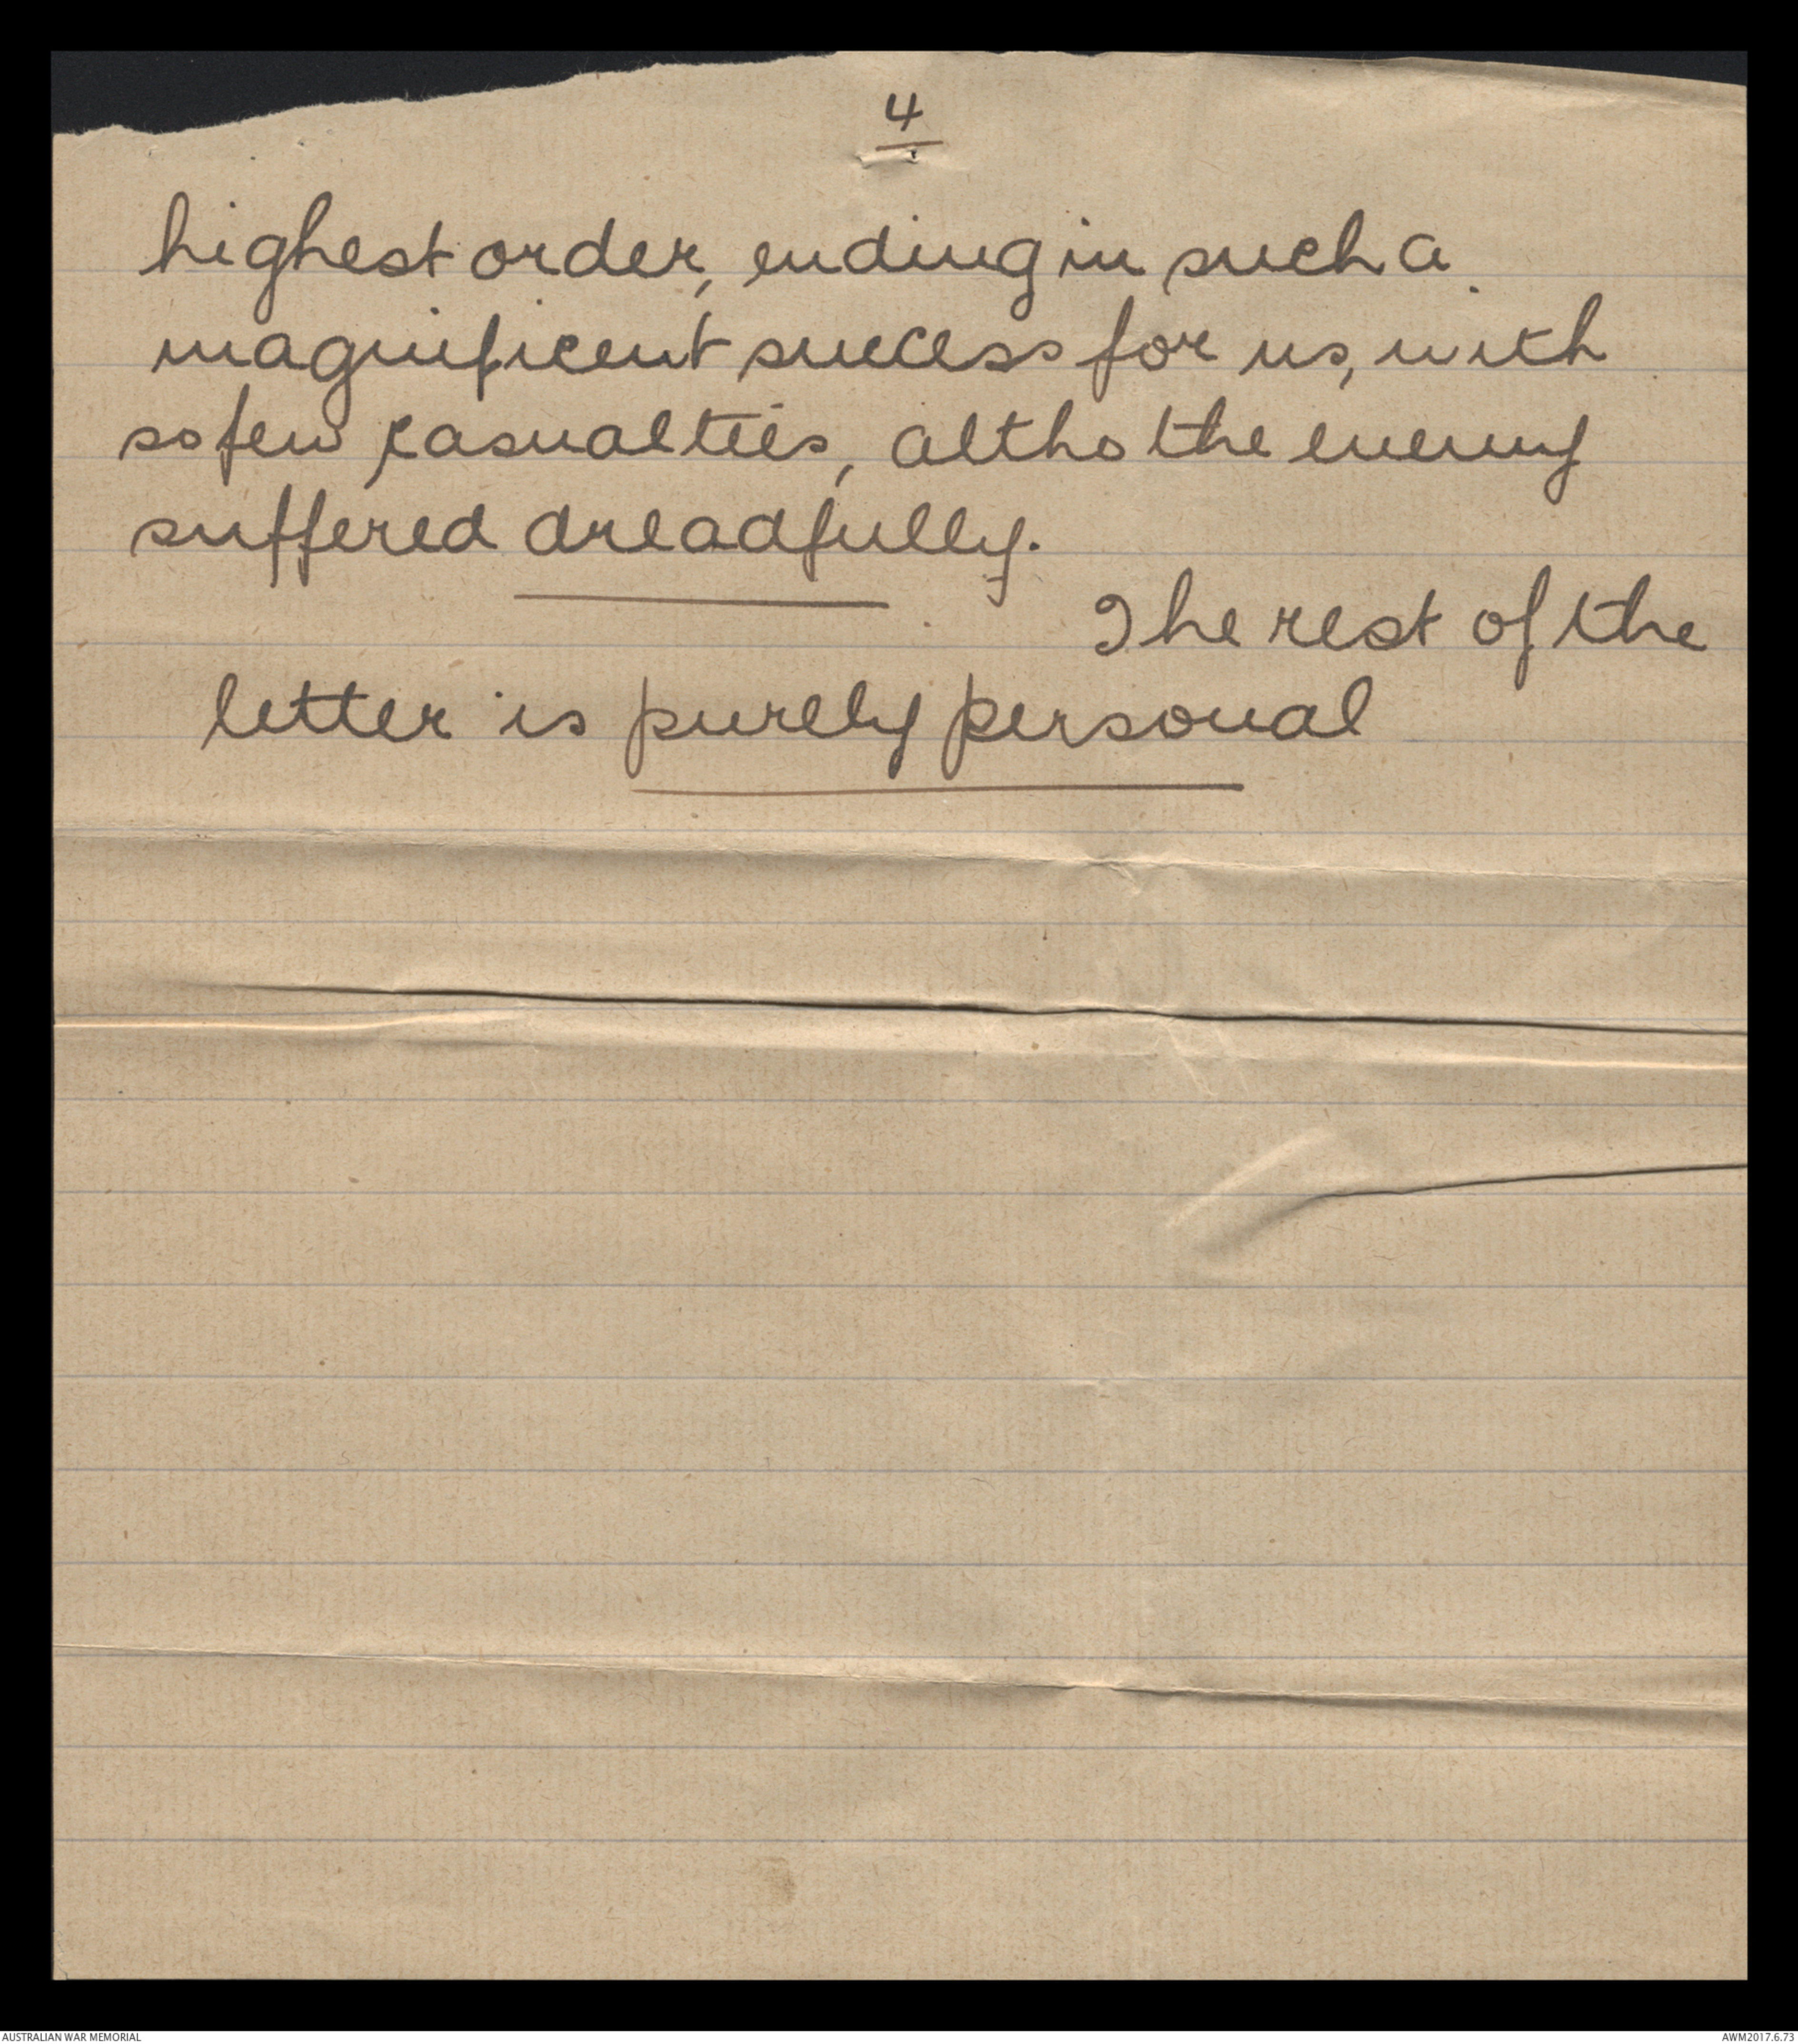 4
highest order, ending in such a
magnificent success for us, with
so few casualties, altho the enemy
suffered dreadfully.
The rest of the
letter is purely personal
AUSTRALIAN WAR MEMORIAL
AWM2017.6.73